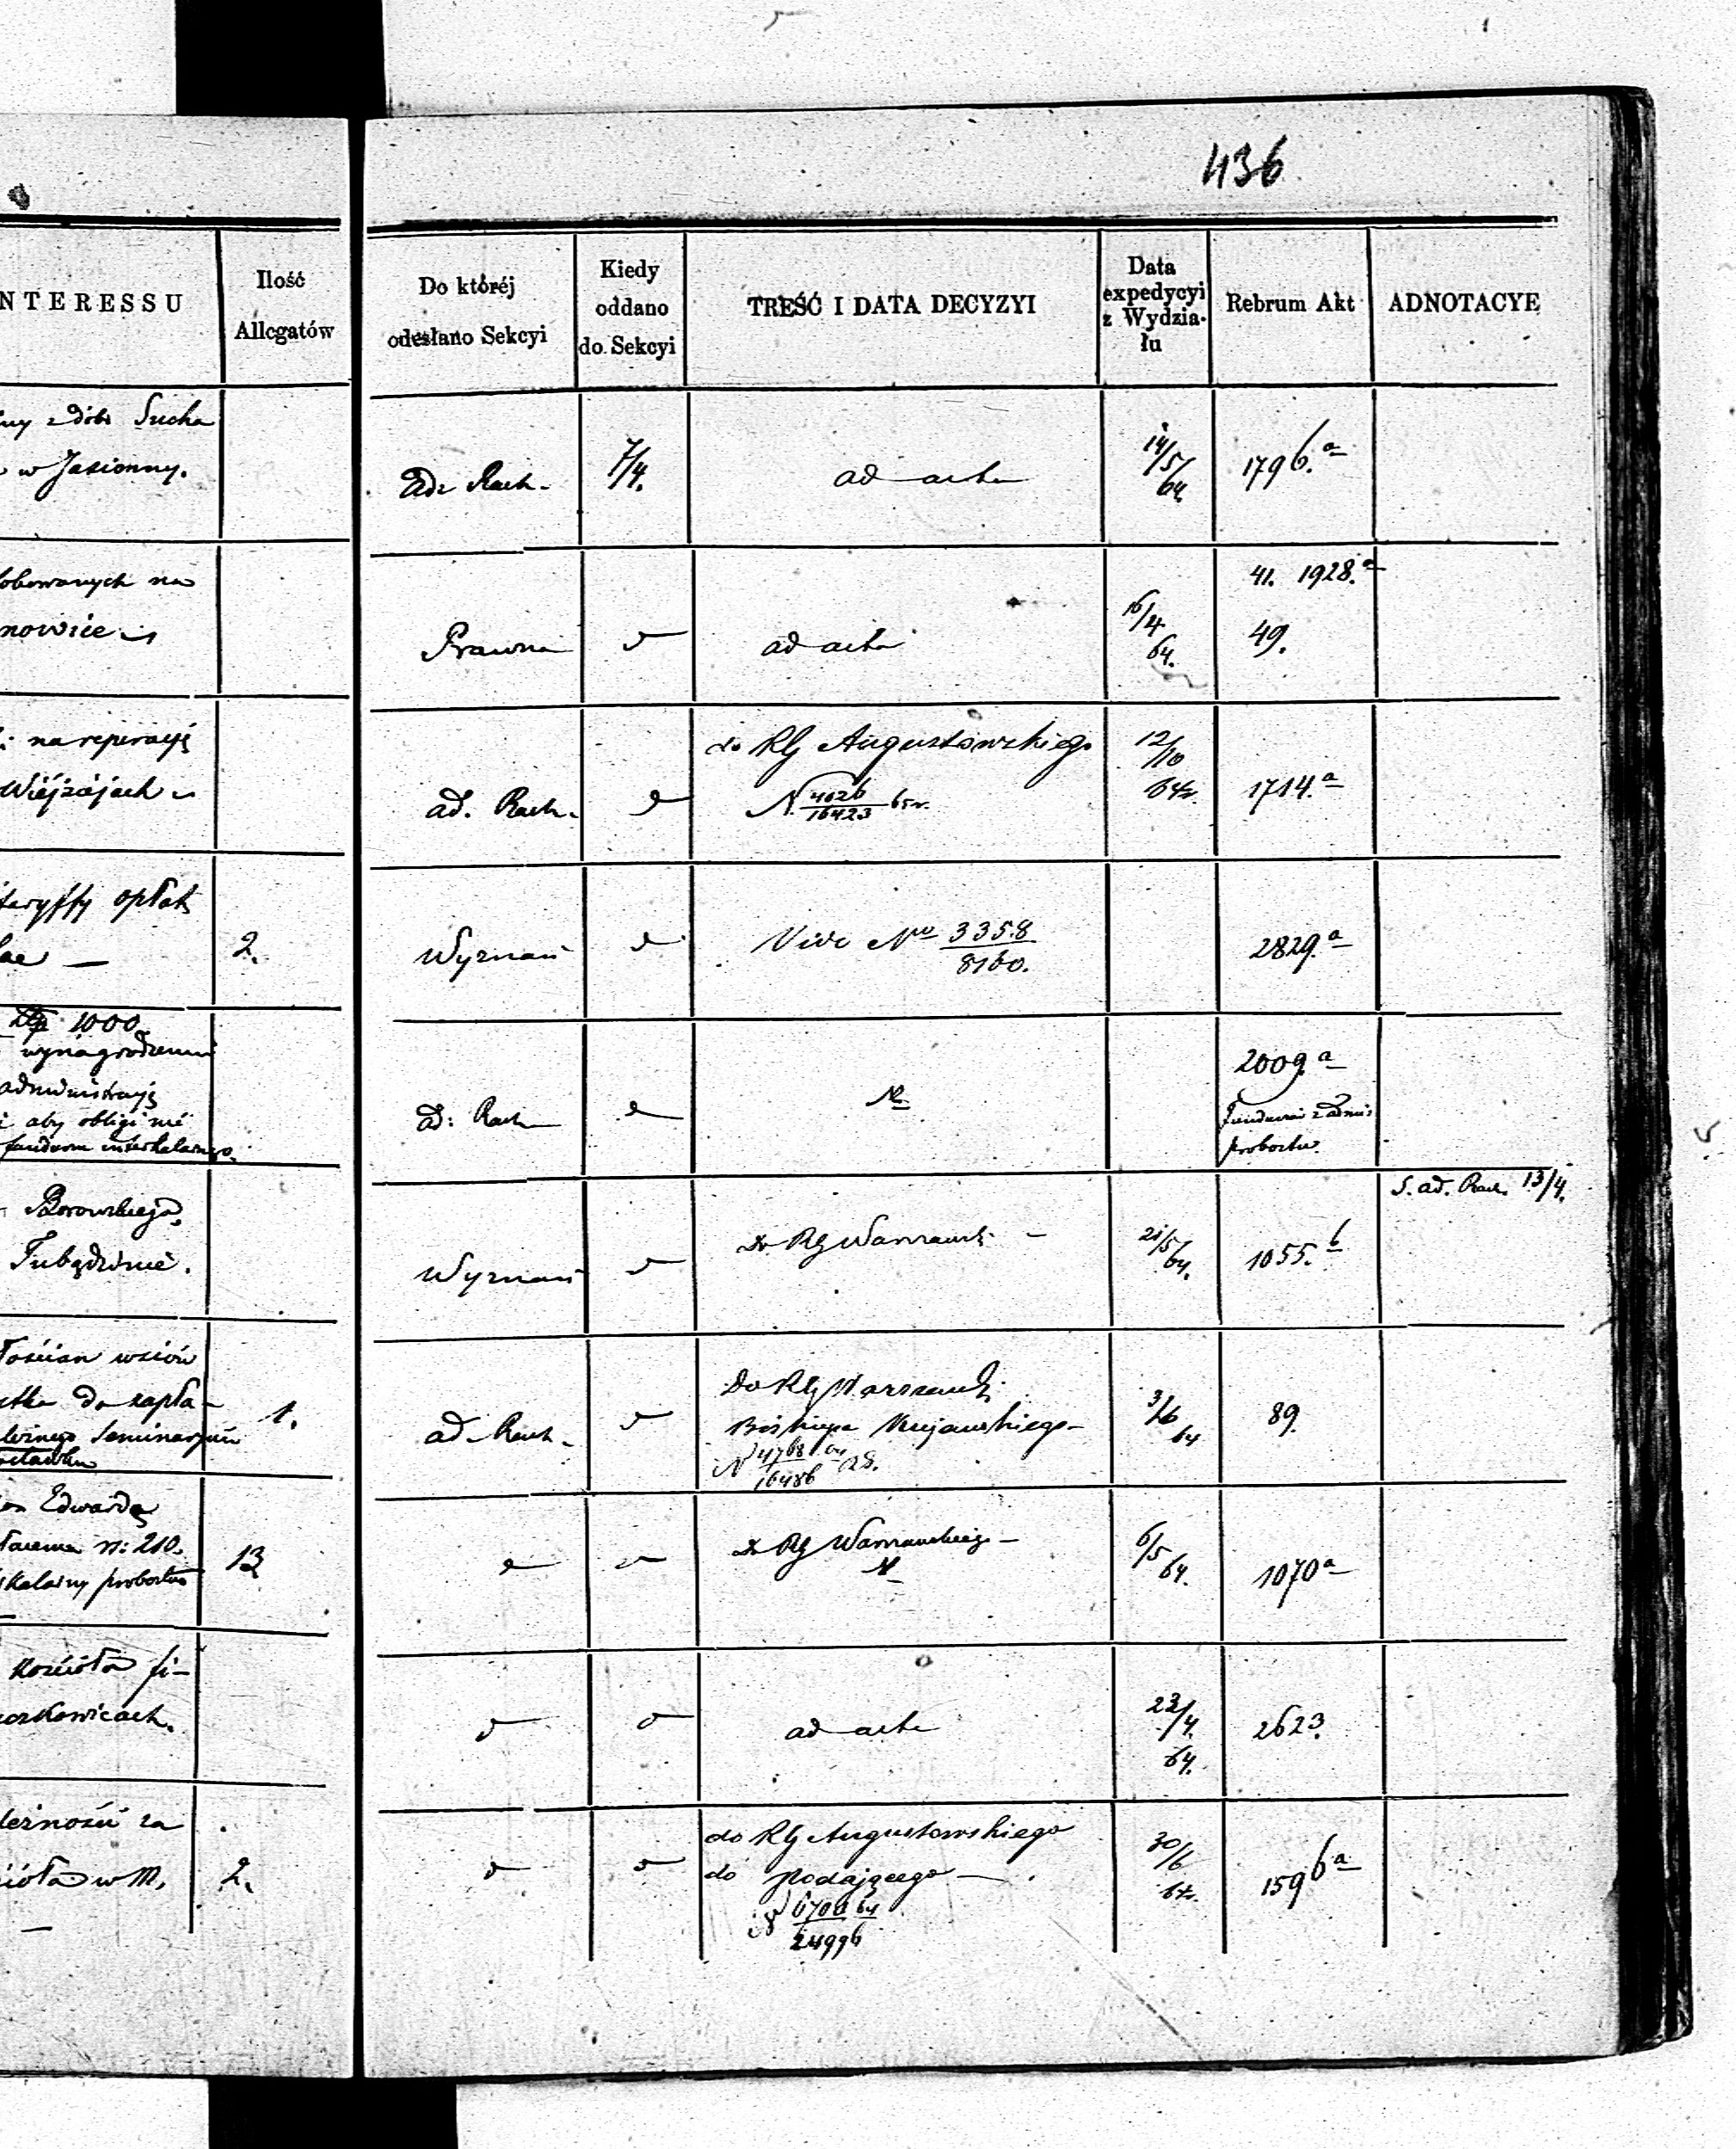 436
NTERESSU
Ilość
Allegatów
Do któréj
odesłano Sekcyi
Kiedy
oddano
do Sekcyi
TREŚĆ I DATA DECYZYI
Data
expedycyi
z Wydzia-
łu
Rebrum Akt
ADNOTACYE
ny z dóbr Sucha
w Jasionny.
Ad: Rach.
7/4.
ad acta
14/5/64
1796.a
lobowanych na
nowice
Prawna
ad acta
16/4 64.
41. 1928.a
49.
na reperacyę
Wiejsiejach
ad. Rach.
do RG Augustowskiego
N. 4026/16423 65r.
12/10 64r.
1714.a
taryffy opłat
lae —
2.
Wyznań
Vide No 3358/8160.
2829.a
Złp 1000
wynagrodzenie
administracyę
aby obligi nie
funduszu interkalarnego.
ad: Rach
N
2009.a
probostw.
S. ad. Rach. 13/4.
Borowskiego,
Tubądzinie.
Wyznań
Do RG Warszawsk. —
21/5/64.
1055.b
włościan wsiów
do zapła-
Seminaryum
1.
ad. Rach.
Do RG Warszawsk.
Biskupa Kujawskiego
N 4768/16486
3/6 64
89.
Edwarda
N: 210.
probostwa
13
Do RG Warszawskiego —
6/5 64.
1070a
Kościoła fi-
czkowicach.
ad acta
23/4. 64.
2623.
leżności za
ościoła w M.
2.
do RG Augustowskiego
do podającego —
N 6700 64/24996
30/6 64r.
1596a